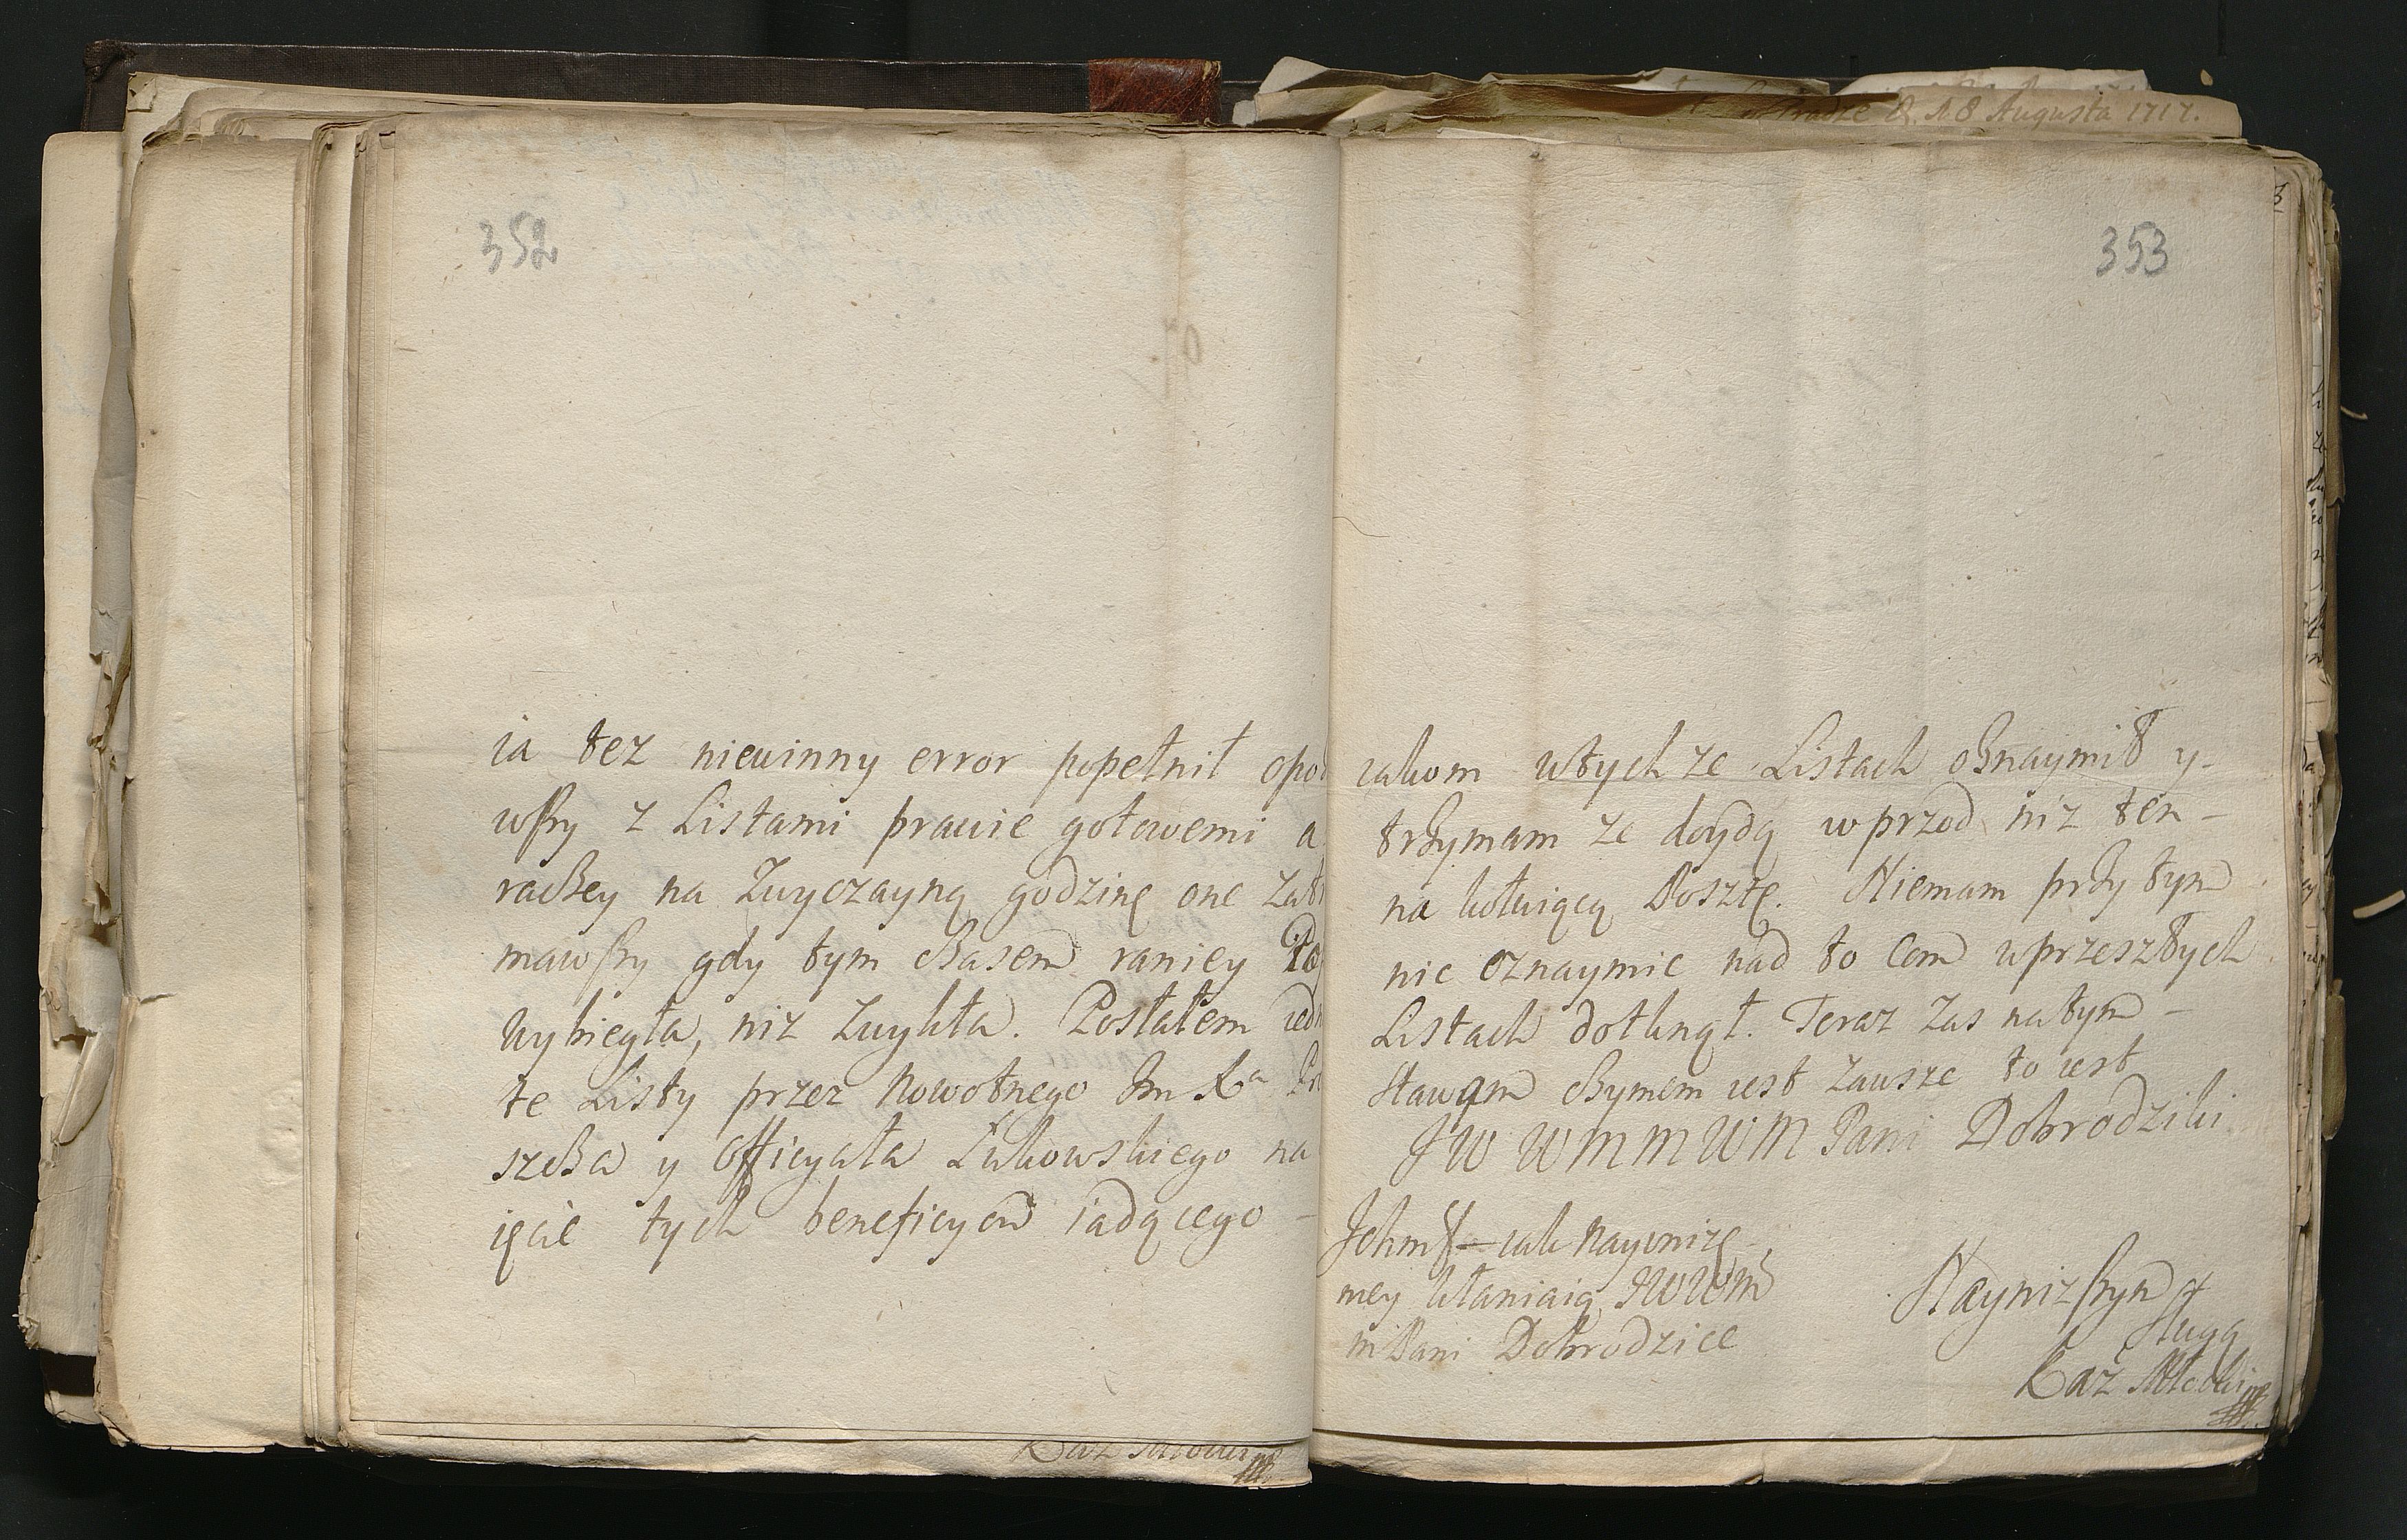 352
ia tez niewinny error popełnił
wszy z Listami prawie gotowemi a
raczey na zwyczayną godzinę one
mawszy gdy tym czasem raniey
wybiegła, niz zwykła. Posłałem
te Listy przez Nowotnego Jm Xa
szcza y Officyała Łukowskiego na
ięcie tych beneficyow iadącego -
353
iakom wtych ze Listach oznaymił y-
trzymam ze doydą wprzod niz ten-
na Posztę. Niemam przy tym
nic oznaymic nad to com wprzeszłych
Listach dotknął. Teraz zas natym-
stawam czymem iest zawsze to iest
JW W M M W M Pani Dobrodziki
iak nayoniżę
mey kłaniaią JWWM
mPani Dobrodzice
Nayniższym
sługą
Kaz
Augusta 1717.